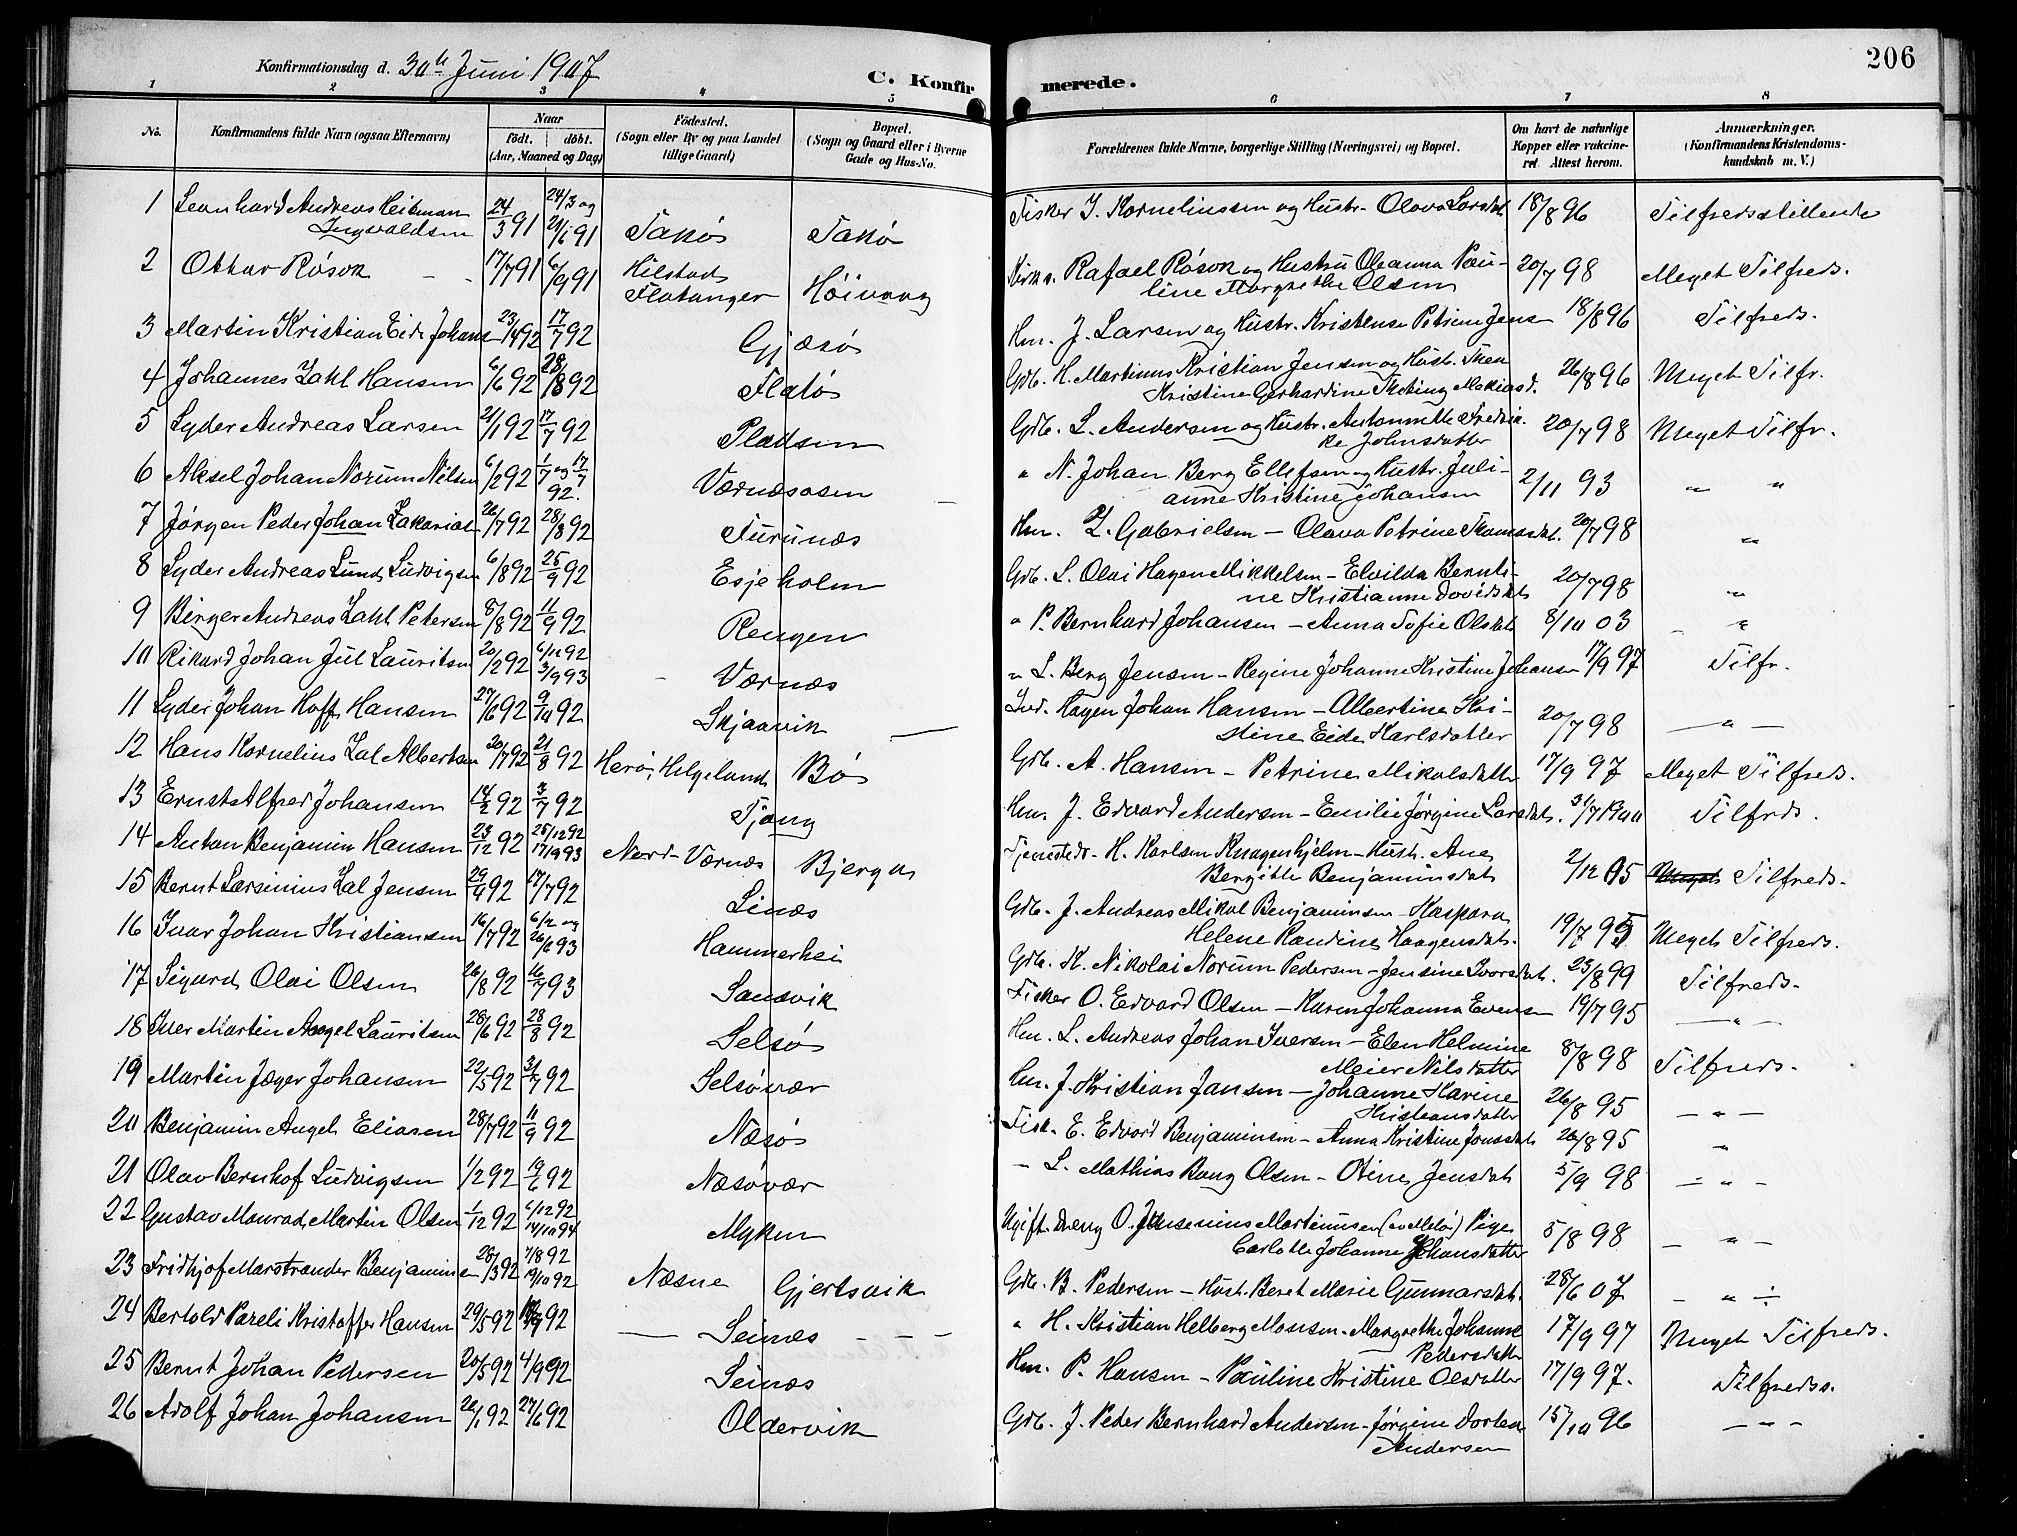 206
Konfirmationsdag d. 30te Juni 1907
C. Konfirmerede.
1 2 3 4 5 6 7 8
No.
Konfirmandens fulde Navn (ogsaa Efternavn)
Naar
födt. döbt.
(Aar, Maaned og Dag)
Födested.
(Sogn eller By og paa Landet
tillige Gaard)
Bopæl.
(Sogn og Gaard eller i Byerne
Gade og Hus-No.
Forældrenes fulde Navne, borgerlige Stilling (Næringsvei) og Bopæl.
Om havt de naturlige
Kopper eller vakcine-
ret. Attest herom.
Anmærkninger.
(Konfirmandens Kristendoms-
kundskab m. V.)
1 Leonhard Andreas Heitman Ingvaldsen 24/3 91 24/3 og 21/6 91 Takø Takø Fisker I. Kornelinssen og Hustr. Olava Larsdat. 18/8 96 Tilfredsstillende
2 Ottar Røsok 17/7 91 6/9 91 Hilstad Flatanger Høivaag Rafael Røsok og Hustru Oleanna Pauline Margrethe Olsen 20/7 98 Meget Tilfreds.
3 Martin Kristian Eide Johans 23/4 92 17/7 92 Gjæsø Hm. J. Larsen og Hustr. Kristense Petrine Jens 18/8 96 Tilfreds.
4 Johannes Zahl Hansen 6/6 92 28/8 92 Flatø Gdb. H. Martinus Kristian Jensen og Hust. Thea Kristine Gerhardine 26/8 96 Meget Tilfr.
5 Lyder Andreas Larsen 21/1 92 17/7 92 Pladsen Gdb. L. Andersen og Hustr. Antonette Fredrikke Johnsdatter 20/7 98 Meget Tilfr.
6 Aksel Johan Norum Nilsen 6/2 92 1/7 og 17/7 92. Værnæsosen " N. Johan Berg Ellefsen og Hustr. Julianne Kristine Johansen 2/11 93 " "
7 Jørgen Peder Johan Zakarias 26/7 92 28/8 92 Furunæs Hm. Z. Gabrielsen - Olava Petrine Thomasdat. 20/7 98 "
8 Lyder Andreas Lund Ludvigsen 6/8 92 25/9 92 Esjeholm Gdb. L. Olai Hagen Mikkelsen - Elvilda Berntine Kristianne Davidsdat 20/7 98 "
9 Birger Andreas Zahl Petersen 8/8 92 11/9 92 Rengen " P. Bernhard Johansen - Anna Sofie Olsdat 8/10 03 "
10 Rikard Johan Jul Lauritsen 20/2 92 6/12 92 3/9 93 Værnæs " L. Berg Jensen - Regine Johanne Kristine Johansen 17/9 97 Tilfr.
11 Lyder Johan Hoff Hansen 27/6 92 9/10 92 Skjaavik Ind. Hagen Johan Hansen - Albertine Kristine Eide Karlsdatter 20/7 98 - " -
12 Hans Kornelius Zal Albertsen 20/7 92 21/8 92 Herø, Helgeland Bø Gdb. A. Hansen - Petrine Mikalsdatter 17/9 97 Meget Tilfreds.
13 Ernst Alfred Johansen 14/2 92 3/7 92 Tjong Hm. J. Edvard Andersen - Emilie Jørgine Larsdat. 31/7 1900 Tilfrds.
14 Anton Benjamin Hansen 23/12 92 25/12 92 17/9 93 Nord-Værnæs Bjerga Tjenesteds. H. Karlsen Knagenhjelm - Hust. Ane Bergitte Benjaminsdat 2/12 05 Meget Tilfreds.
15 Bernt Larsinius Zal Jensen 29/4 92 17/7 92 Linæs Gdb. J. Andreas Mikal Benjaminsen - Kaspara Helene Randine Haagensdat. 19/7 95 Meget Tilfreds.
16 Ivar Johan Kristiansen 16/7 92 6/12 og 26/6 93 Hammerhei Gdb. K. Nikolai Norum Pedersen - Jensine Ivarsdat. 23/8 99 Tilfreds.
17 Sigurd Olai Olsen 26/8 92 16/7 93 Sandvik Fisker O. Edvard Olsen - Karen Johanna Evensen 19/7 95 - " -
18 Iver Martin Angel Lauritsen 28/6 92 28/8 92 Selsø Hm. L. Andreas Johan Iversen - Elen Helmine Meier Nilsdatter 8/8 98 Tilfreds.
19 Martin Jæger Johansen 22/5 92 31/7 92 Selsøvær Hm. J. Kristian Jansen - Johanne Harine Kristiansdatter 26/8 95 - " -
20 Benjamin Angel Eliasen 28/7 92 11/9 92 Næsø Fisk. E. Edvard Benjaminsen - Anna Kristine Jonsdat 26/8 95 "
21 Olav Bernhof Ludvigsen 1/2 92 19/6 92 Næsøvær - L. Mathias Bang Olsen - Otine Jensdat 5/9 98 - " -
22 Gustav Monrad Martin Olsen 1/12 92 6/12 92 14/10 94 Myken Ugift. Dreng O. Jensenius Martinussen (av Meløi) Pige Carlotte Johanne Johansdatter 5/8 98 - " -
23 Fridhjof Marstrander Benjaminsen 28/3 92 7/8 92 19/10 92 Næsne Gjertsvik Gdb. B. Pedersen - Hust. Beret Marie Gunnarsdat. 28/6 07 - " -
24 Bertold Pareli Kristoffer Hansen 29/5 92 92 Seinæs " H. Kristian Helberg Monsen - Margrethe Johanne Pedersdatter 17/9 97 Meget Tilfreds.
25 Bernt Johan Pedersen 20/5 92 4/9 92 Seinæs Hm. P. Hansen - Pauline Kristine Olsdatter 17/9 97. Tilfredss.
26 Adolf Johan Johansen 26/1 92 27/6 92 Oldervik Gdb. J. Peder Bernhard Andersen - Jørgine Dortea Andersen 15/10 96 - " -